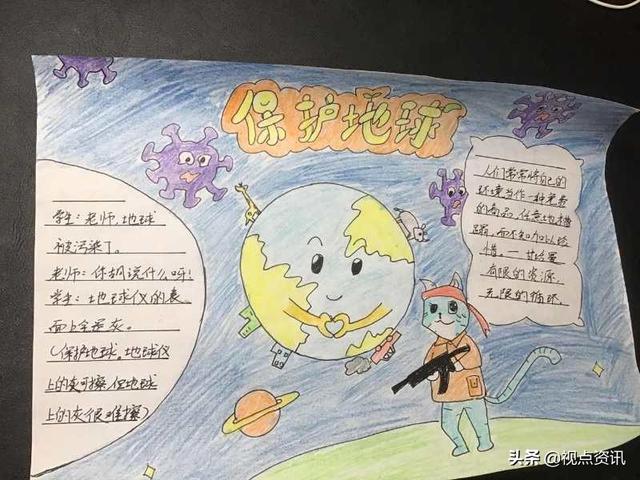 保护地球
学生:老师,地球
被污染了。
老师:你胡说什么呀!
学生:地球仪的表
面上全是灰。
(保护地球,地球仪
上的灰可擦,但地球
上的灰很难擦)
人们常常将自己的
环境当作一种免费
的商品,任意地糟
蹋,而不知加以珍
惜,一
有限的资源
无限的循环.
头条 @视点资讯